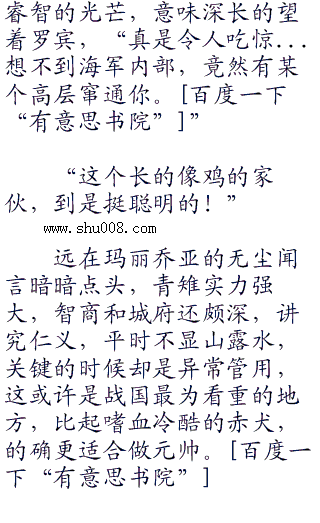 睿智的光芒，意味深长的望
着罗宾，“真是令人吃惊...
想不到海军内部，竟然有某
个高层窜通你。[百度一下
“有意思书院”]”
“这个长的像鸡的家
伙，到是挺聪明的！”
www.shu008.com
远在玛丽乔亚的无尘闻
言暗暗点头，青雉实力强
大，智商和城府还颇深，讲
究仁义，平时不显山露水，
关键的时候却是异常管用，
这或许是战国最为看重的地
方，比起嗜血冷酷的赤犬，
的确更适合做元帅。[百度一
下“有意思书院”]